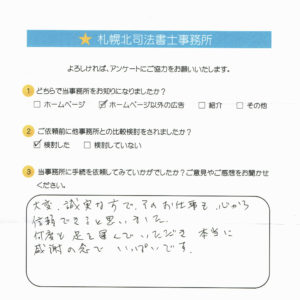 ★ 札幌北司法書士事務所
よろしければ、アンケートにご協力をお願いいたします。
1 どちらで当事務所をお知りになりましたか？
□ ホームページ ☑ ホームページ以外の広告 □ 紹介 □ その他
2 ご依頼前に他事務所との比較検討をされましたか？
☑ 検討した □ 検討していない
3 当事務所に手続を依頼してみていかがでしたか？ご意見やご感想をお聞かせ
ください。
大変、誠実な方で、そのお仕事も、心から
信頼できると思いました。
何度も足を運んでいただき 本当に
感謝の念で いっぱいです。